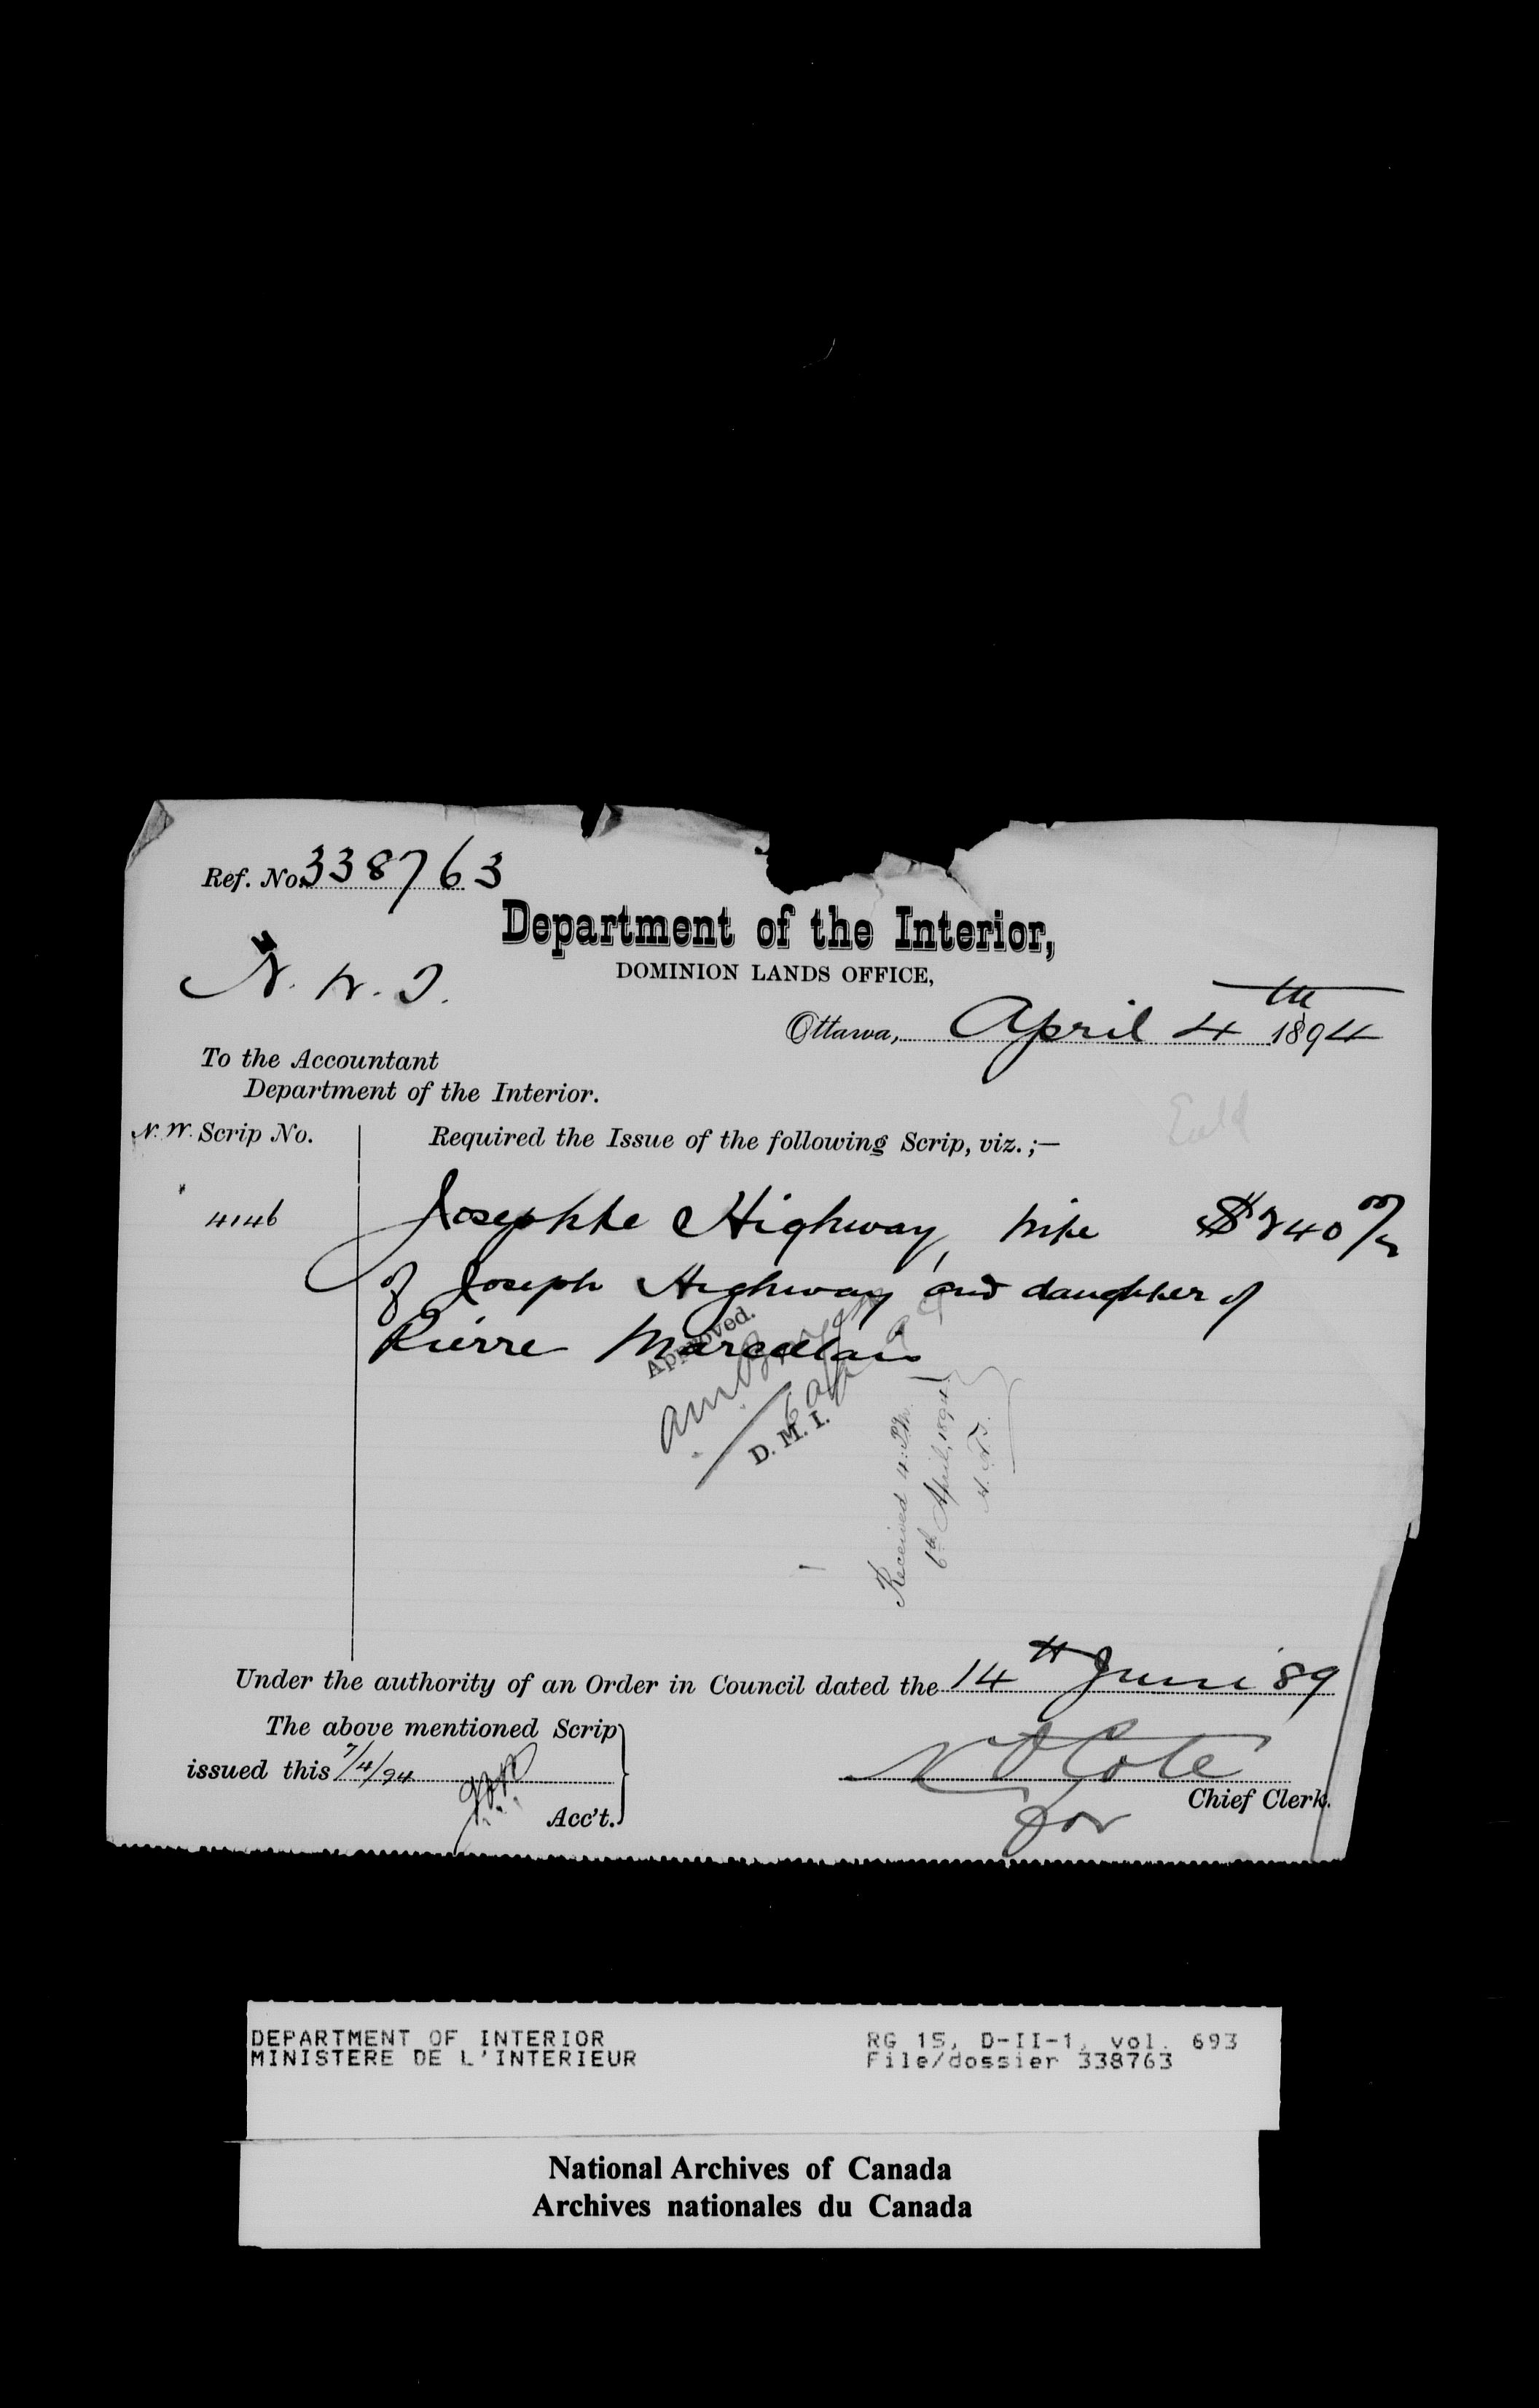 Ref. No. 338763
Department of the Interior,
N. W. T.
DOMINION LANDS OFFICE,
Ottawa, April 4th 1894
To the Accountant
Department of the Interior.
N. W. Scrip No.
Required the Issue of the following Scrip, viz. ;—
4146
Josephte Highway, wife $240 00/
of Joseph Highway and daughter of
Pierre Marcellais
Approved.
D. M. I.
Received 4. P.M.
6th April, 1894
Under the authority of an Order in Council dated the 14th June '89
The above mentioned Scrip
issued this 7/4/94
Acc't.
N O Cote
Chief Clerk.
for
DEPARTMENT OF INTERIOR
MINISTERE DE L'INTERIEUR
RG 15, D-II-1, vol. 693
File/dossier 338763
National Archives of Canada
Archives nationales du Canada